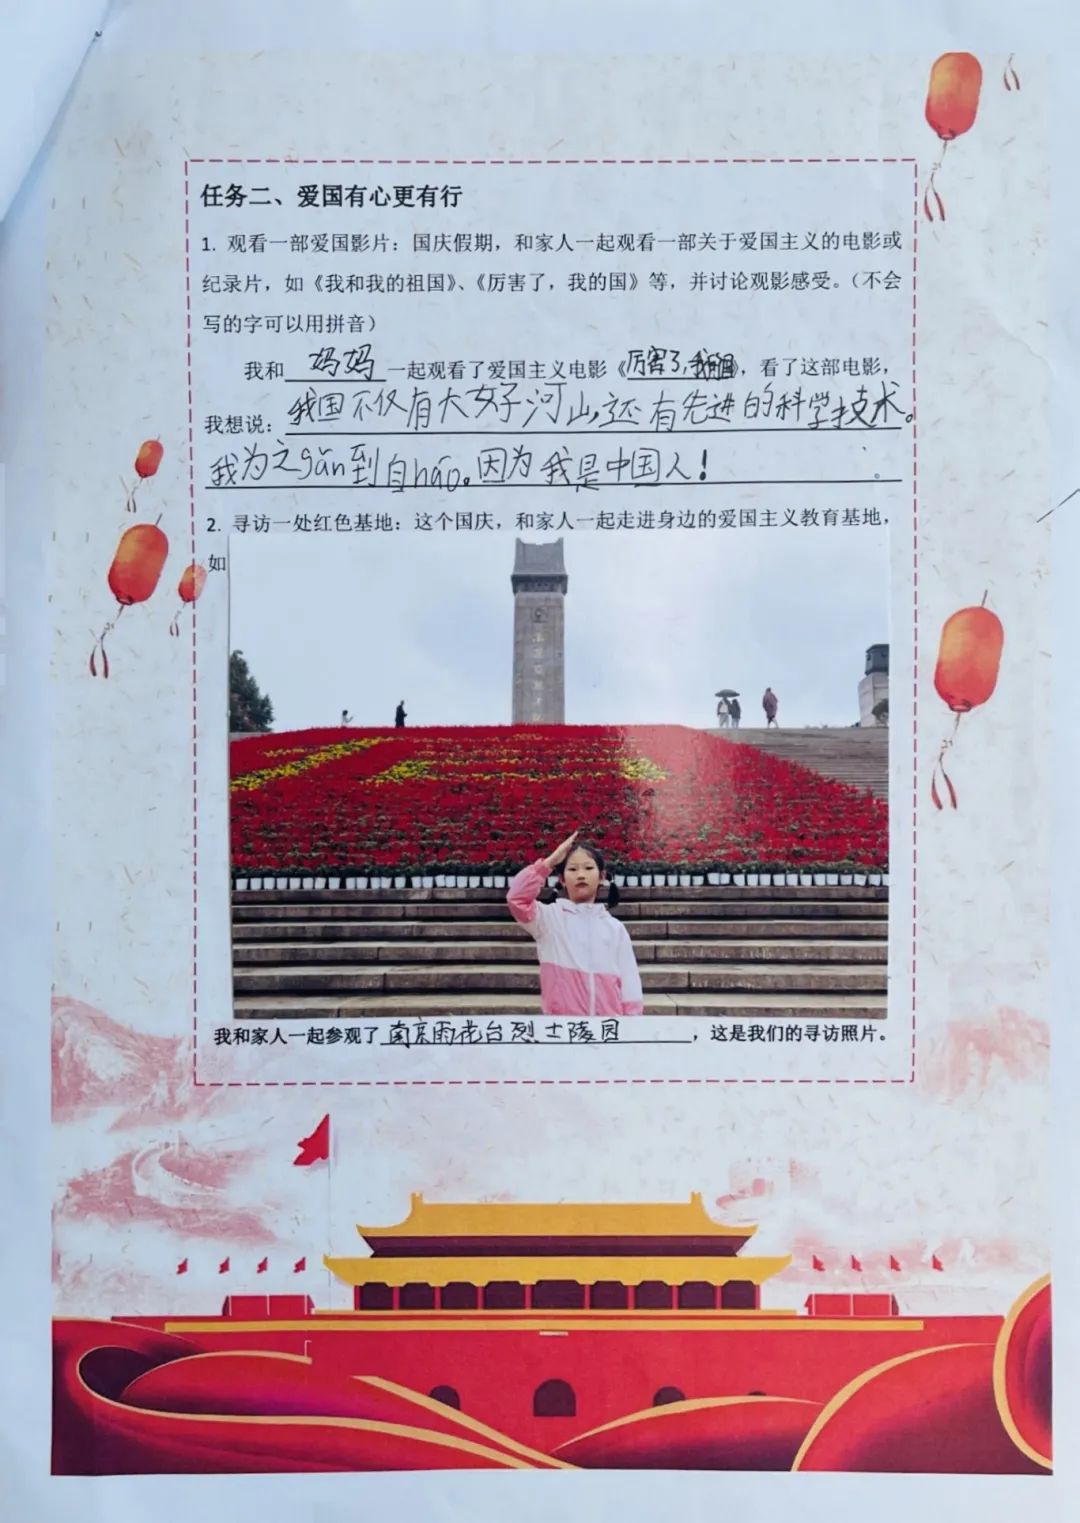 任务二、爱国有心更有行
1. 观看一部爱国影片：国庆假期，和家人一起观看一部关于爱国主义的电影或
纪录片，如《我和我的祖国》、《厉害了，我的国》等，并讨论观影感受。（不会
写的字可以用拼音）
我和妈妈一起观看了爱国主义电影《厉害了，我的国》，看了这部电影，
我想说：我国不仅有大好河山，还有先进的科学技术。
我为之gǎn到自háo。因为我是中国人！。
2. 寻访一处红色基地：这个国庆，和家人一起走进身边的爱国主义教育基地，
如
我和家人一起参观了南京雨花台烈士陵园，这是我们的寻访照片。